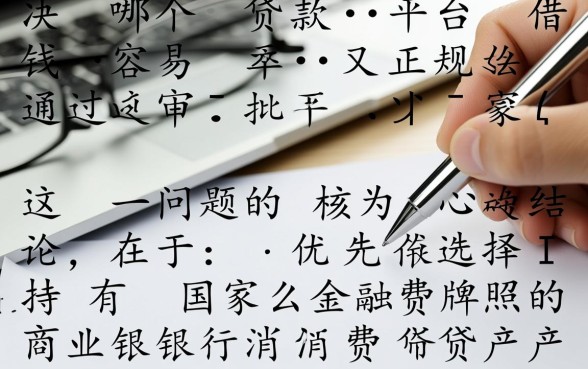 决 哪个 贷款··平台 借
钱·容易 萃··又正规
通过 审 批平 家
这 一问题的 核为 心 结
论，在于：·优先 选择
持有 国家么金融费牌照的
商业银银行消消费 贷产产